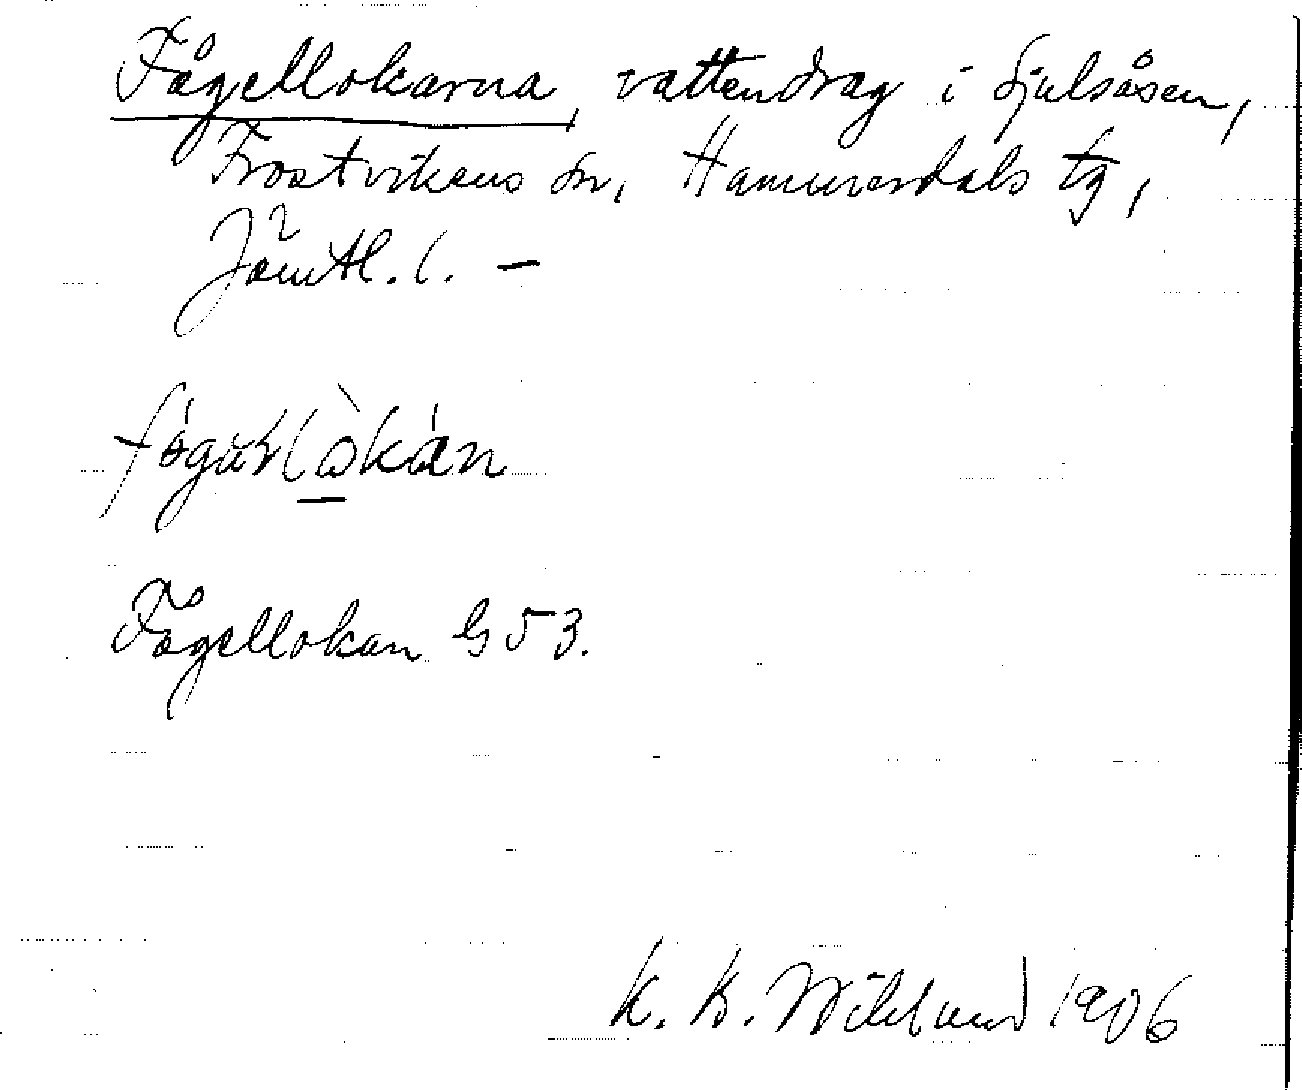 Fågellokarna, vattendrag i Sjulsåsen,
Frostvikens sn, Hammerdals tg,
Jämtl. l. –
Fågellokan G 53.
K. B. Wiklund 1906